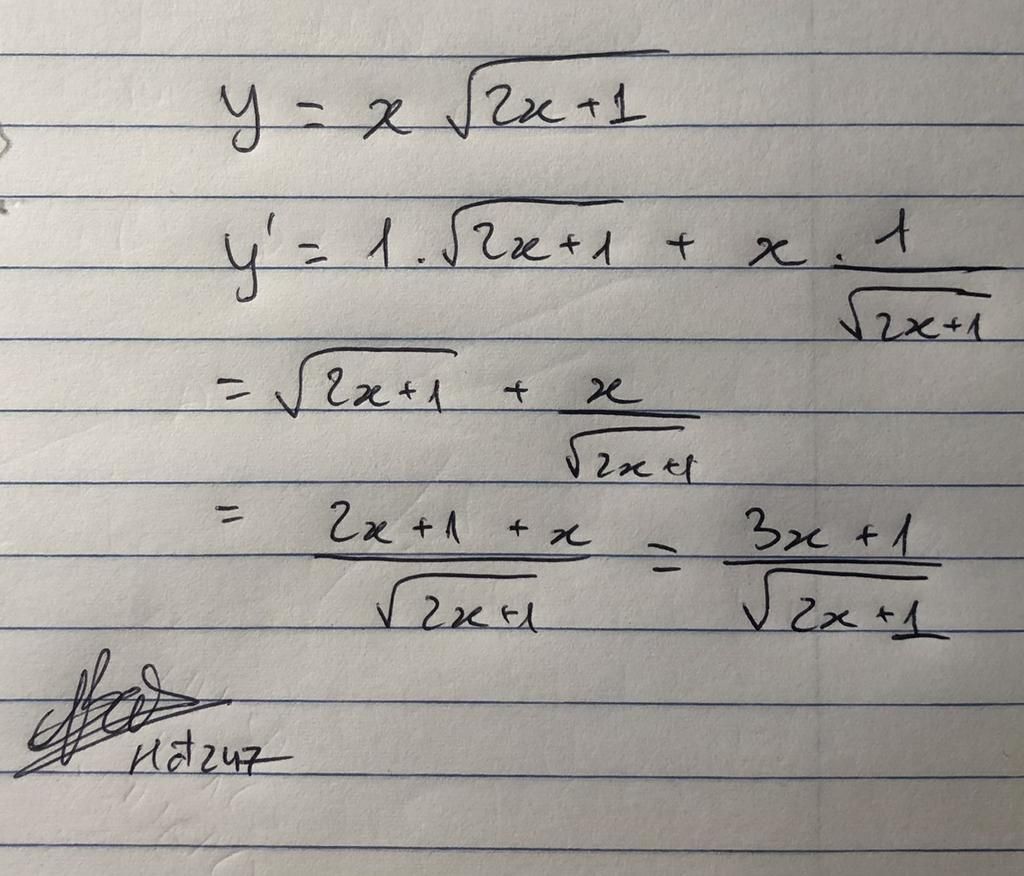 y = x √(2x+1)
y' = 1 . √(2x+1) + x . 1/√(2x+1)
= √(2x+1) + x/√(2x+1)
= (2x+1+x)/√(2x+1) = (3x+1)/√(2x+1)